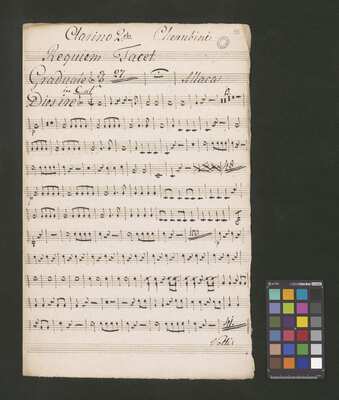 Clarino 2do Cherubini
Requiem Tacet
Graduale 27 Attaca
in C
Dies irae
48
Volti